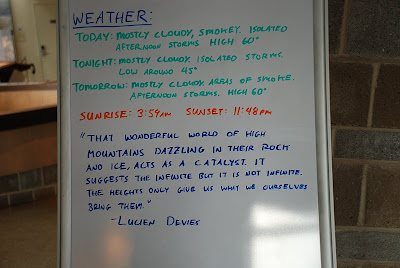 WEATHER:
TODAY: MOSTLY CLOUDY, SMOKEY. ISOLATED
AFTERNOON STORMS HIGH 60°
TONIGHT: MOSTLY CLOUDY. ISOLATED STORMS.
LOW AROUND 45°
TOMORROW: MOSTLY CLOUDY. AREAS OF SMOKE.
AFTERNOON STORMS. HIGH 60°
SUNRISE: 3:59AM SUNSET: 11:48PM
"THAT WONDERFUL WORLD OF HIGH
MOUNTAINS DAZZLING IN THEIR ROCK
AND ICE, ACTS AS A CATALYST. IT
SUGGESTS THE INFINITE BUT IT IS NOT INFINITE.
THE HEIGHTS ONLY GIVE US WHAT WE OURSELVES
BRING THEM."
- LUCIEN DEVIES